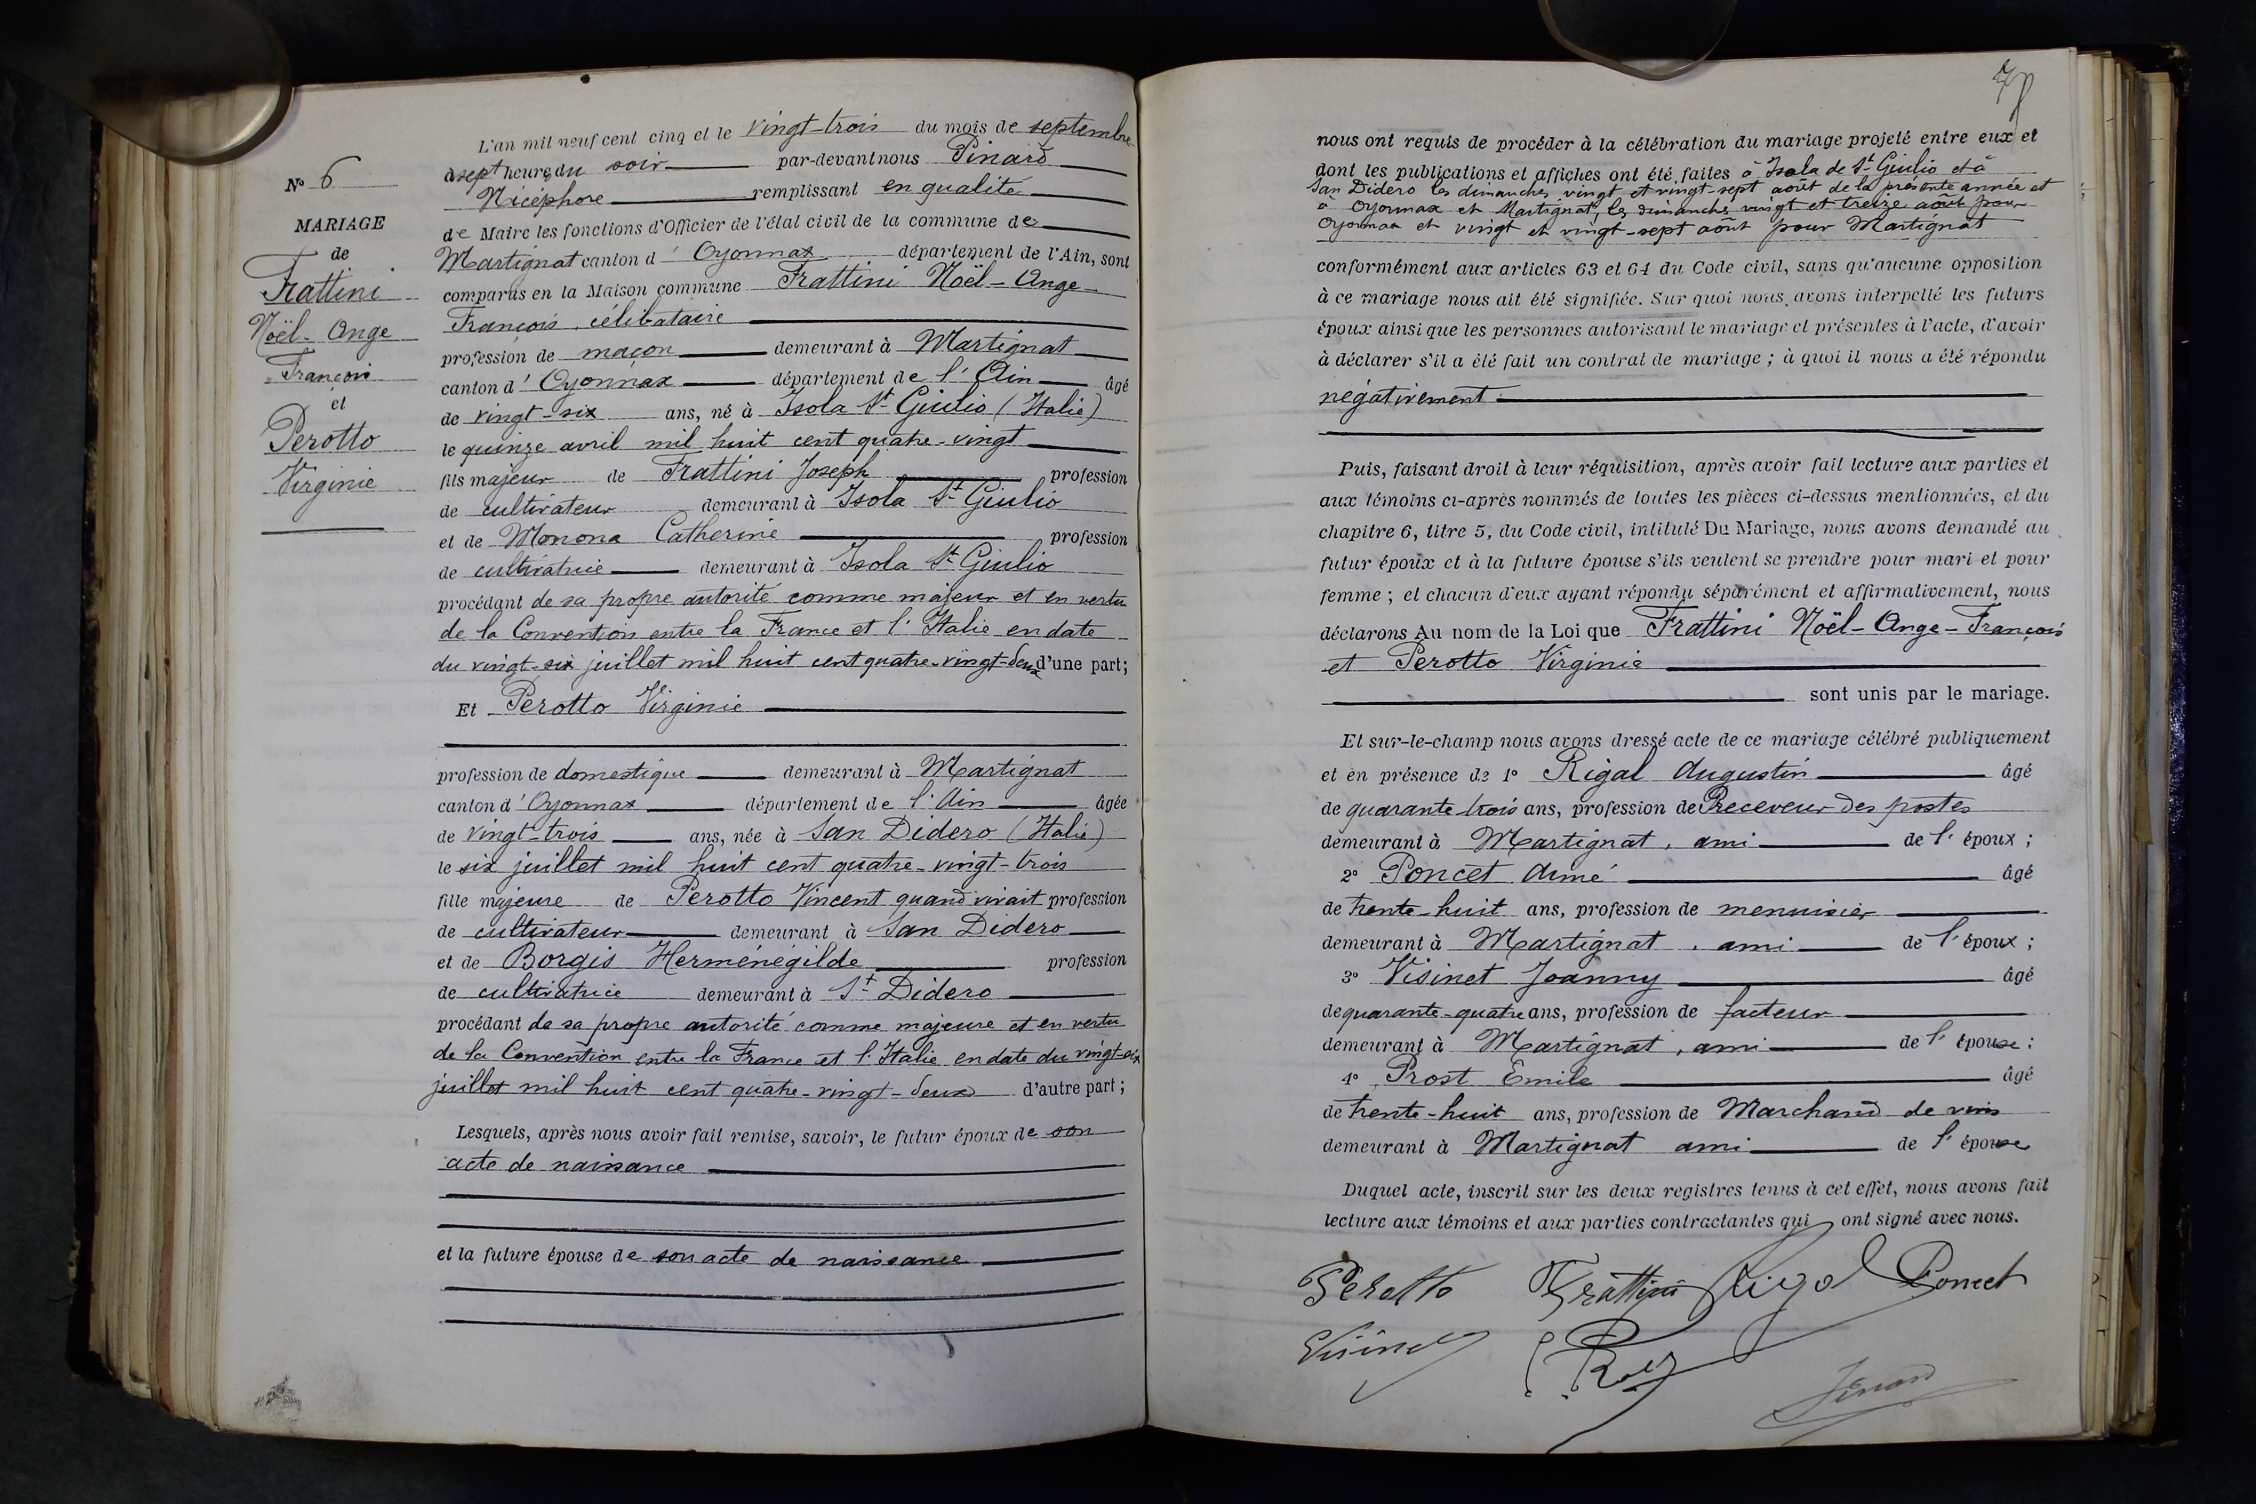 N° 6
MARIAGE
de
Frattini
Noël-Ange
François
et
Perotto
Virginie
L'an mil neuf cent cinq et le vingt-trois du mois de septembre
à sept heures du soir par-devant nous Pinard
Nicéphore remplissant en qualité
de Maire les fonctions d'Officier de l'état civil de la commune de
Martignat canton d'Oyonnax département de l'Ain, sont
comparus en la Maison commune Frattini Noël-Ange
François, célibataire
profession de maçon demeurant à Martignat
canton d'Oyonnax département de l'Ain âgé
de vingt-six ans, né à Isola St Giulio (Italie)
le quinze avril mil huit cent quatre-vingt
fils majeur de Frattini Joseph profession
de cultivateur demeurant à Isola St Giulio
et de Monona Catherine profession
de cultivatrice demeurant à Isola St Giulio
procédant de sa propre autorité comme majeur et en vertu
de la Convention entre la France et l'Italie en date
du vingt-six juillet mil huit cent quatre-vingt-deux d'une part;
Et Perotto Virginie
profession de domestique demeurant à Martignat
canton d'Oyonnax département de l'Ain âgée
de vingt-trois ans, née à San Didero (Italie)
le six juillet mil huit cent quatre-vingt-trois
fille majeure de Perotto Vincent quand vivait profession
de cultivateur demeurant à San Didero
et de Borgis Herménégilde profession
de cultivatrice demeurant à St Didero
procédant de sa propre autorité comme majeure et en vertu
de la Convention entre la France et l'Italie en date du vingt-six
juillet mil huit cent quatre-vingt-deux d'autre part;
Lesquels, après nous avoir fait remise, savoir, le futur époux de son
acte de naissance
et la future épouse de son acte de naissance
nous ont requis de procéder à la célébration du mariage projeté entre eux et
dont les publications et affiches ont été faites à Isola de St Giulio et à
San Didero les dimanches vingt et vingt-sept août de la présente année et
à Oyonnax et Martignat, les dimanches vingt et treize août pour
Oyonnax et vingt et vingt-sept août pour Martignat
conformément aux articles 63 et 64 du Code civil, sans qu'aucune opposition
à ce mariage nous ait été signifiée. Sur quoi nous avons interpellé les futurs
époux ainsi que les personnes autorisant le mariage et présentes à l'acte, d'avoir
à déclarer s'il a été fait un contrat de mariage; à quoi il nous a été répondu
négativement
Puis, faisant droit à leur réquisition, après avoir fait lecture aux parties et
aux témoins ci-après nommés de toutes les pièces ci-dessus mentionnées, et du
chapitre 6, titre 5, du Code civil, intitulé Du Mariage, nous avons demandé au
futur époux et à la future épouse s'ils veulent se prendre pour mari et pour
femme; et chacun d'eux ayant répondu séparément et affirmativement, nous
déclarons Au nom de la Loi que Frattini Noël-Ange-François
et Perotto Virginie
sont unis par le mariage.
Et sur-le-champ nous avons dressé acte de ce mariage célébré publiquement
et en présence de 1° Rigal Augustin âgé
de quarante trois ans, profession de Receveur des postes
demeurant à Martignat, ami de l'époux;
2° Poncet Aimé âgé
de trente-huit ans, profession de menuisier
demeurant à Martignat, ami de l'époux;
3° Visinet Joanny âgé
de quarante-quatre ans, profession de facteur
demeurant à Martignat, ami de l'épouse:
4° Prost Emile âgé
de trente-huit ans, profession de Marchand de vins
demeurant à Martignat ami de l'épouse
Duquel acte, inscrit sur les deux registres tenus à cet effet, nous avons fait
lecture aux témoins et aux parties contractantes qui ont signé avec nous.
Perotto Frattini Rigal Poncet
Visinet
Pinard